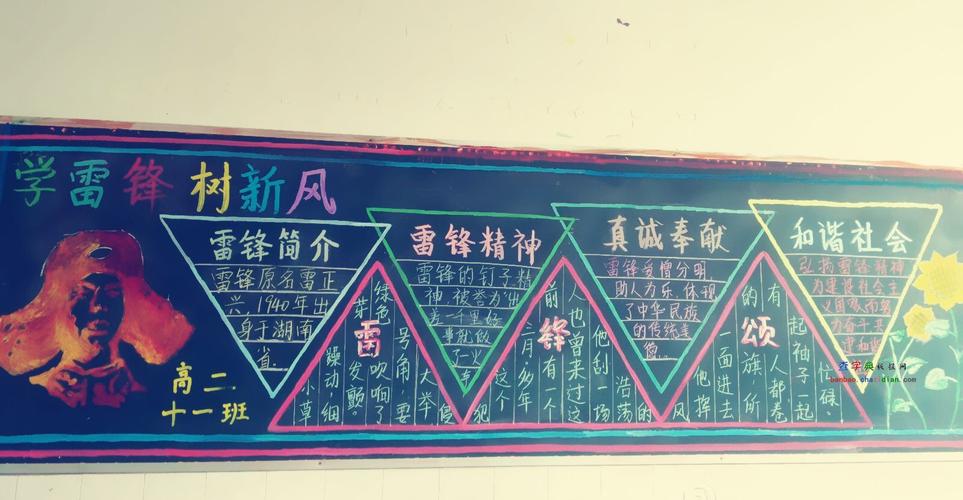 学雷锋 树新风
高二
十一班
雷锋简介
雷锋原名雷正
兴，1940年出
身于湖南
省.
雷锋精神
雷锋的钉子精
神，被誉为"出
差一千里好
事就做
了一火
车
真诚奉献
雷锋爱憎分明
助人为乐，体现
了中华民族
的传统美
德.
和谐社会
弘扬雷锋精神
为建设社会主
义
力奋斗
雷
绿色号角，要
吹响了大举侵
芽发颤
躁动，细
小草
锋
人也曾来过这
他刮一场
浩荡的
前有一个
二月，多少年
这个
犯
颂
有一起袖子一起
人都卷
的旗，所
一面进去
他挥
风
什
候，
查字典板报网
banbao.chazidian.com